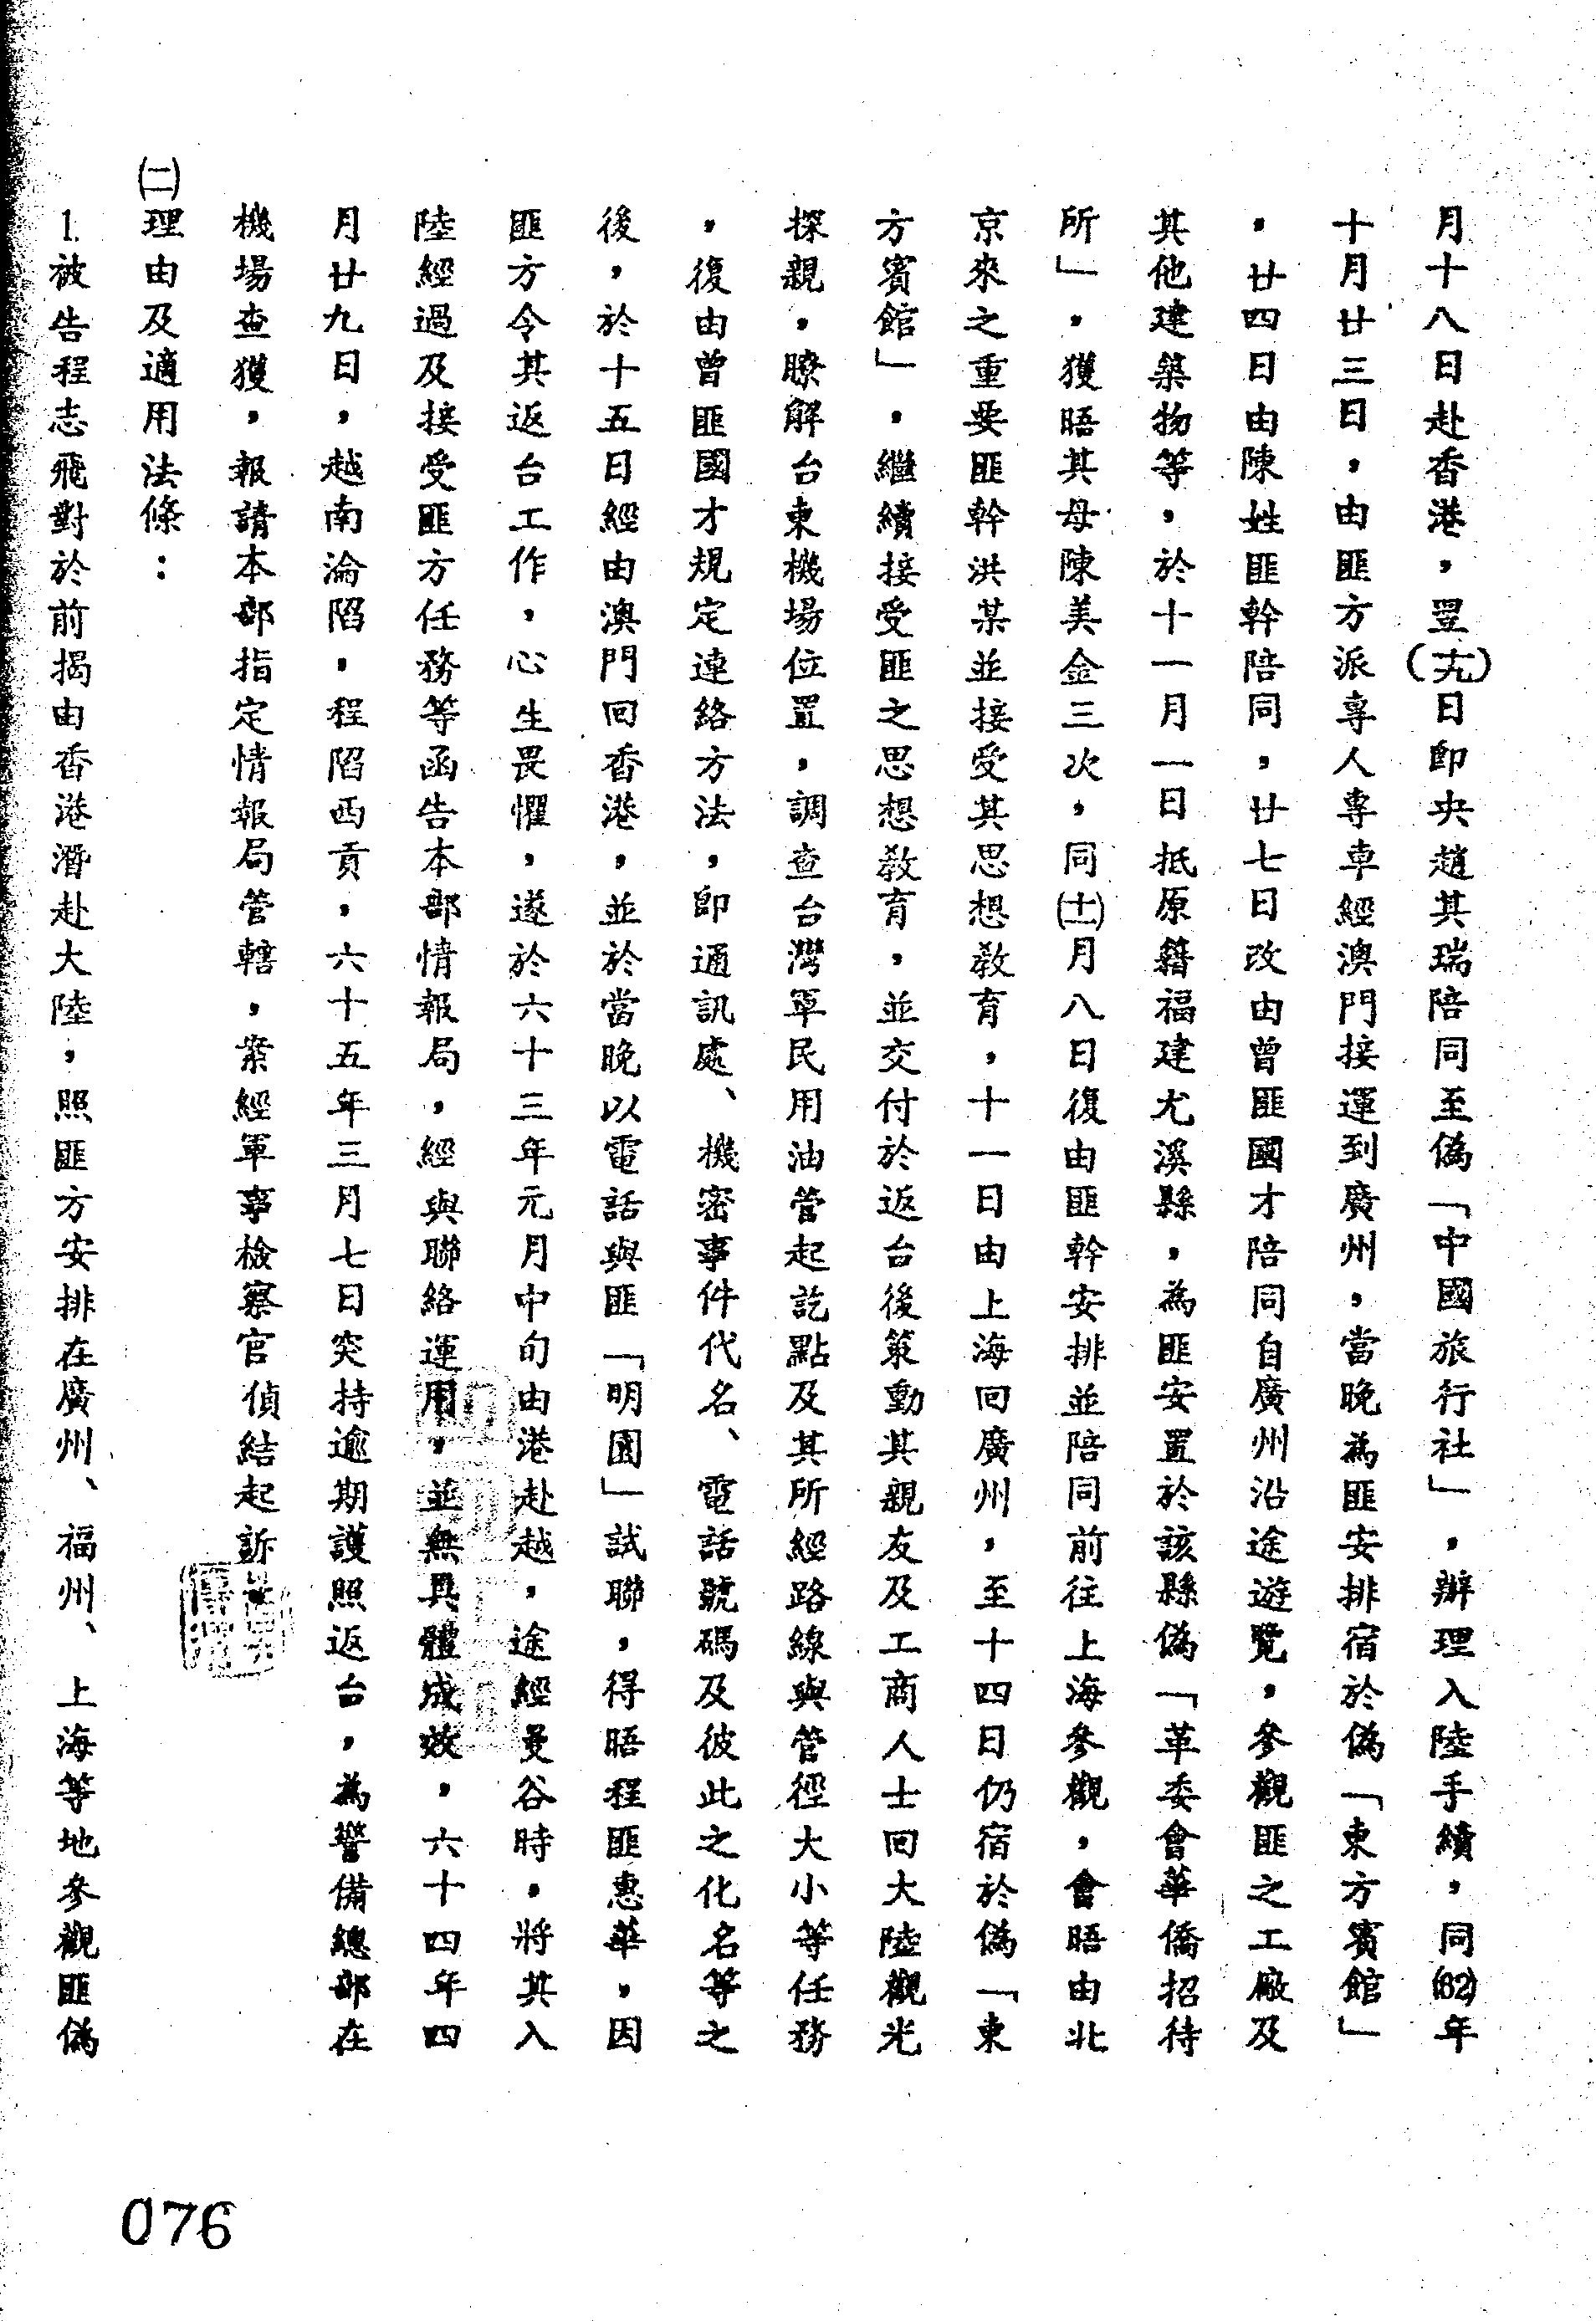 月十八日赴香港，翌(十九)日即央趙其瑞陪同至偽「中國旅行社」，辦理入陸手續，同(62)年
十月廿三日，由匪方派專人專車經澳門接運到廣州，當晚為匪安排宿於偽「東方賓館」
，廿四日由陳姓匪幹陪同，廿七日改由曾匪國才陪同自廣州沿途遊覽，參觀匪之工廠及
其他建築物等，於十一月一日抵原籍福建尤溪縣，為匪安置於該縣偽「革委會華僑招待
所」，獲晤其母陳美金三次，同(十一)月八日復由匪幹安排並陪同前往上海參觀，會晤由北
京來之重要匪幹洪某並接受其思想教育，十一日由上海回廣州，至十四日仍宿於偽「東
方賓館」，繼續接受匪之思想教育，並交付於返台後策動其親友及工商人士回大陸觀光
探親，瞭解台東機場位置，調查台灣軍民用油管起訖點及其所經路線與管徑大小等任務
，復由曾匪國才規定連絡方法，即通訊處、機密事件代名、電話號碼及彼此之化名等之
後，於十五日經由澳門回香港，並於當晚以電話與匪「明園」試聯，得晤程匪惠華，因
匪方令其返台工作，心生畏懼，遂於六十三年元月中旬由港赴越，途經曼谷時，將其入
陸經過及接受匪方任務等函告本部情報局，經與聯絡運用，並無具體成效，六十四年四
月廿九日，越南淪陷，程陷西貢，六十五年三月七日突持逾期護照返台，為警備總部在
機場查獲，報請本部指定情報局管轄，案經軍事檢察官偵結起訴。
(二)理由及適用法條：
1.被告程志飛對於前揭由香港潛赴大陸，照匪方安排在廣州、福州、上海等地參觀匪偽
076